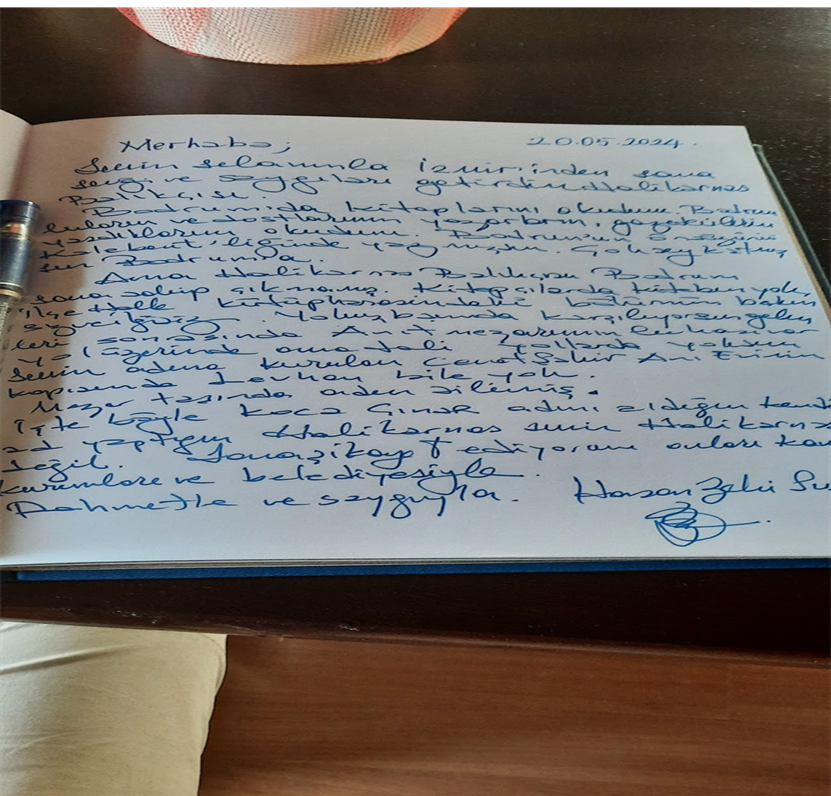 Merhaba; 20.05.2024.
Senin selamınla İzmir'inden sana
sevgi ve saygıları getirdim Halikarnas
Balıkçısı.
Bodrum'da kitaplarını okudum. Bodrum
ve dostlarının yazarların,
okudum. Bodrum'un
yazmışsın. Çok sey katmış
sın Bodrum'a.
Ama Halikarnas Balıkçısı Bodrum
sana sahip çıkmamış. Kitapçılarda kitabın yok,
İlçe Halk kütüphanesindeki
Yokuşbaşında karşılıyorsun gelen
leri sonrasında Anıt mezarının
yol üzerinde ama tali yollarda yoksun
Senin adına kurulan Cevat Şakir Anı Evinin
kapısında Levhan bile yok.
Mezar taşında
İşte böyle Koca Çınar adını aldığın kendi
ad yaptığın Halikarnas senin Halikarnas
değil. Sana şikayet ediyorum onları
kurumları ve belediyesiyle.
Rahmetle ve saygıyla. Hasan Zeki